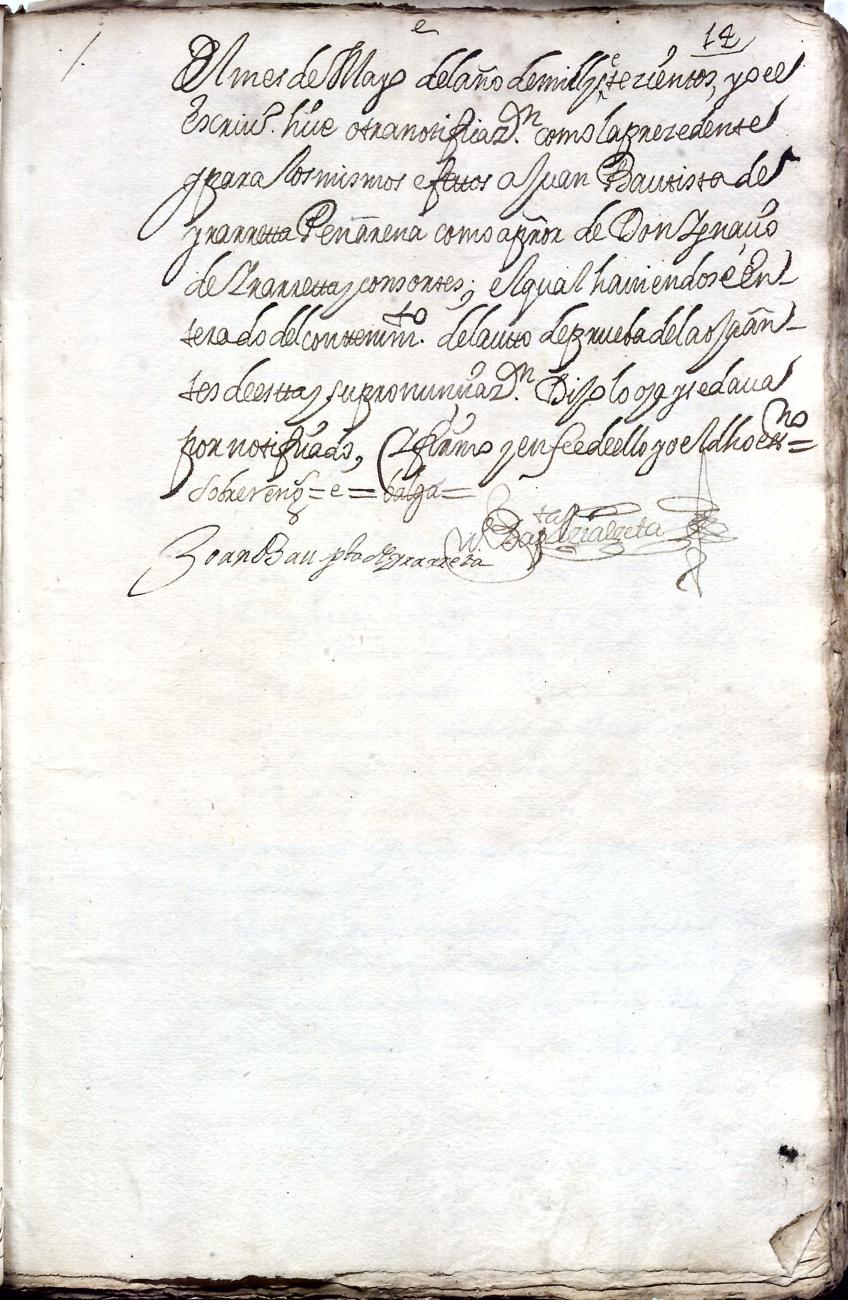 14
Del mes de Mayo del año de mill y setecientos, yo el
Escriuº. hiçe otra notificazon. como la prezedente
y para los mismos efettos a Juan Bautista de
yrarretta Peñarena como apror de Don Ygnaçio
de Yrarretta y consortes; el qual hauiendose en-
terado del contenimto. del auto de prueba de las Juan-
tes de esta y su pronunçiazon. Dijo lo oya y se daua
por notifiçado, Y firmo y en fee de ello yo el dho essno=
Sobre reng = e = balga =
Joan Bauptta de Yrarreta